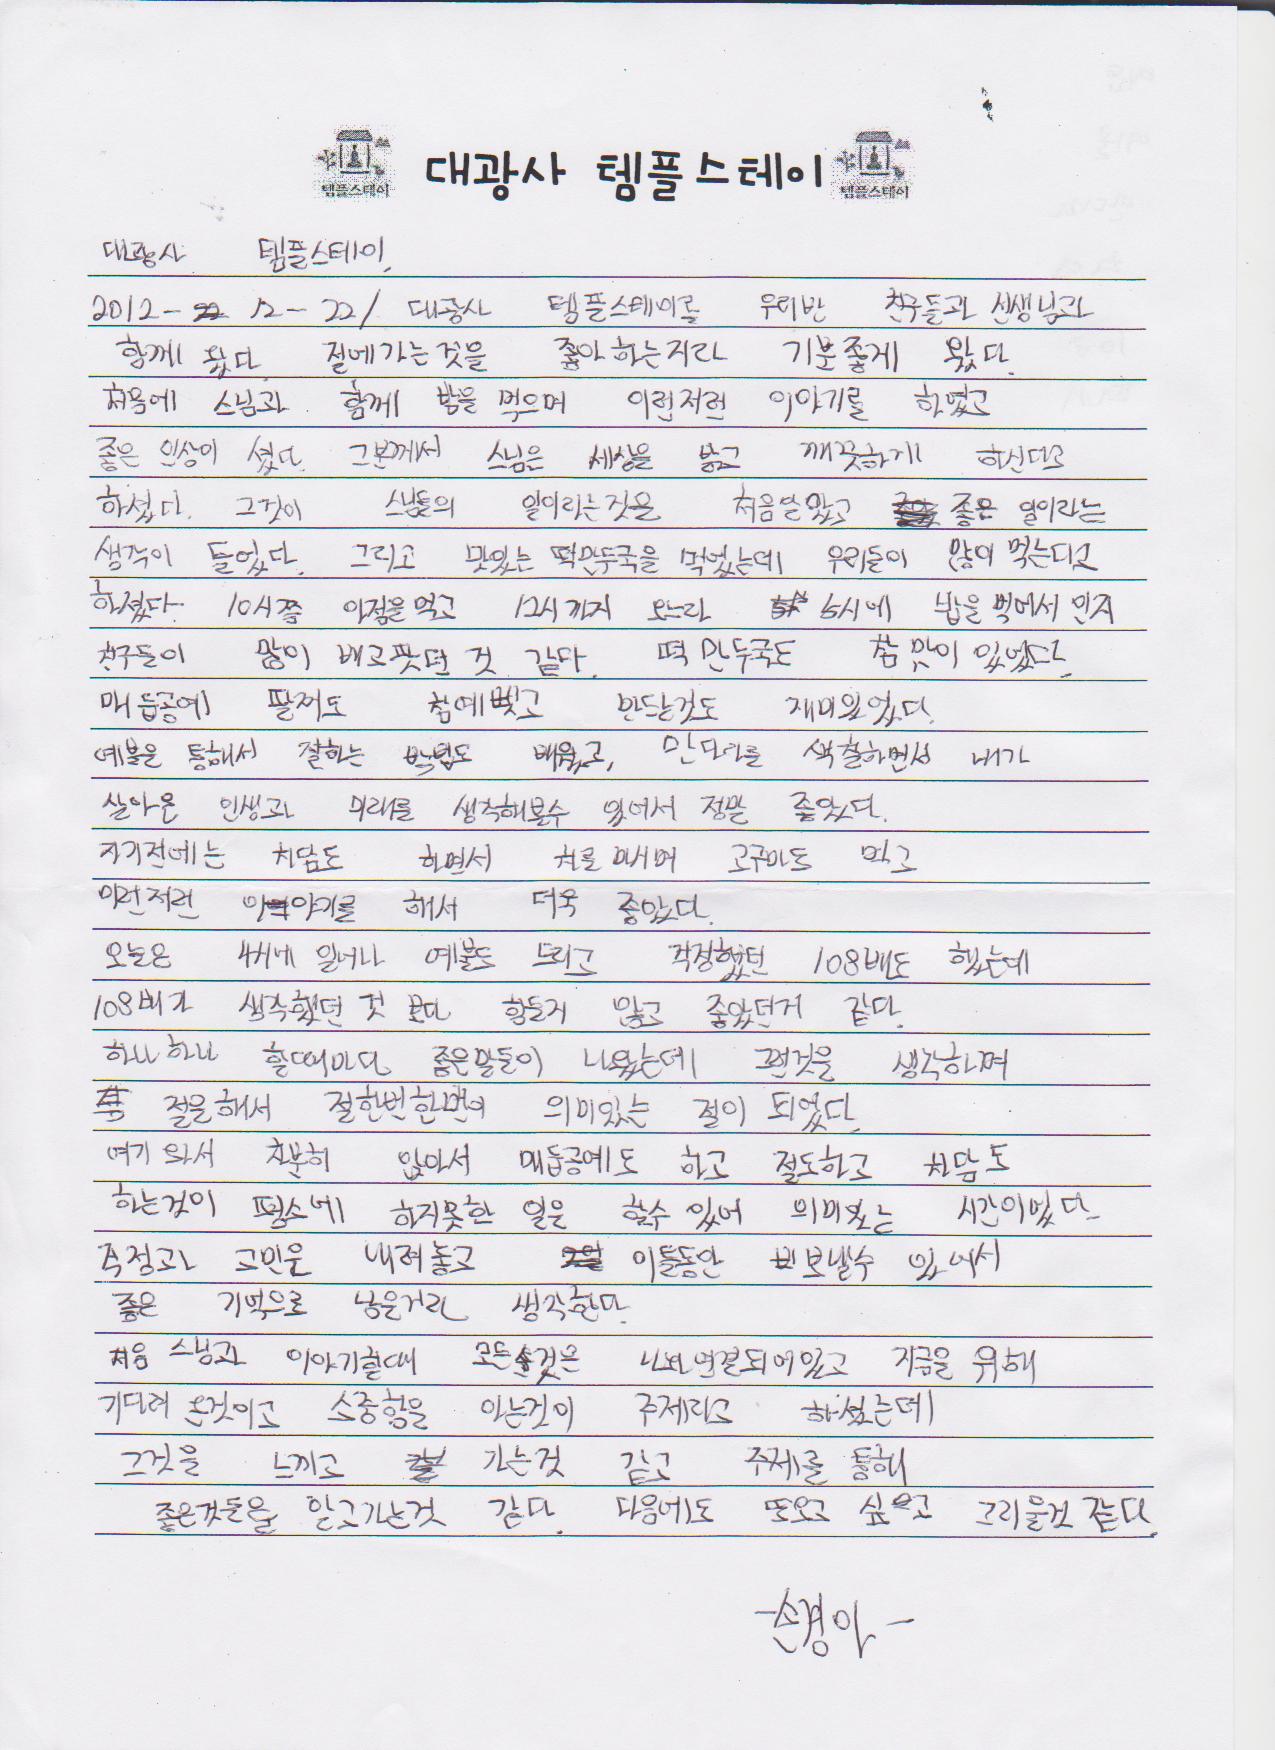 대광사 템플스테이
템플스테이 템플스테이
대광사 템플스테이.
2012- 12-22/ 대광사 템플스테이를 우리반 친구들과 선생님과
함께 왔다. 절에가는것을 좋아하는지라 기분좋게 왔다.
처음에 스님과 함께 밤을 먹으며 이런저런 이야기를 하였고
좋은 인상이 셨다. 그분께서 스님은 세상을 밝고 깨끗하게 하신다고
하셨다. 그것이 스님들의 일이라는것은 처음알았고 좋은 일이라는
생각이 들었다. 그리고 맛있는 떡만두국을 먹었는데 우리들이 많이 먹는다고
하셨다. 10시쯤 아점을먹고 12시까지 오느라 5시에 밥을 먹어서 인지
친구들이 많이 배고팟던 것 같다. 떡만두국도 참 맛이 있었다.
매듭공예 팔찌도 참예뻣고 만드는것도 재미있었다.
예불을 통해서 절하는 방법도 배웠고, 만다라를 색칠하면서 내가
살아온 인생과 미래를 생각해볼수 있어서 정말 좋았다.
자기전에는 차담도 하면서 차를 마시며 고구마도 먹고
이런저런 이야기를 해서 더욱 좋았다.
오늘은 4시에 일어나 예불도 드리고 걱정했던 108배도 했는데
108배가 생각했던 것 보다 힘들지 않고 좋았던거 같다.
하나하나 할때마다 좋은말들이 나왔는데 그런것을 생각하며
절을해서 절한번한번이 의미있는 절이 되었다.
여기 와서 차분히 앉아서 매듭공예도 하고 절도하고 차담도
하는것이 평소에 하지못한 일을 할수 있어 의미있는 시간이었다.
걱정과 고민은 내려놓고 이틀동안 보낼수 있어서
좋은 기억으로 남을거라 생각한다.
처음 스님과 이야기할때 모든것은 나와연결되어있고 지금을 위해
기다려 온것이고 소중함을 아는것이 주제라고 하셨는데
그것을 느끼고 가는것 같고 주제를 통해
좋은것들을 알고가는것 같다. 다음에도 또오고 싶고 그리울것 같다.
-손경아-